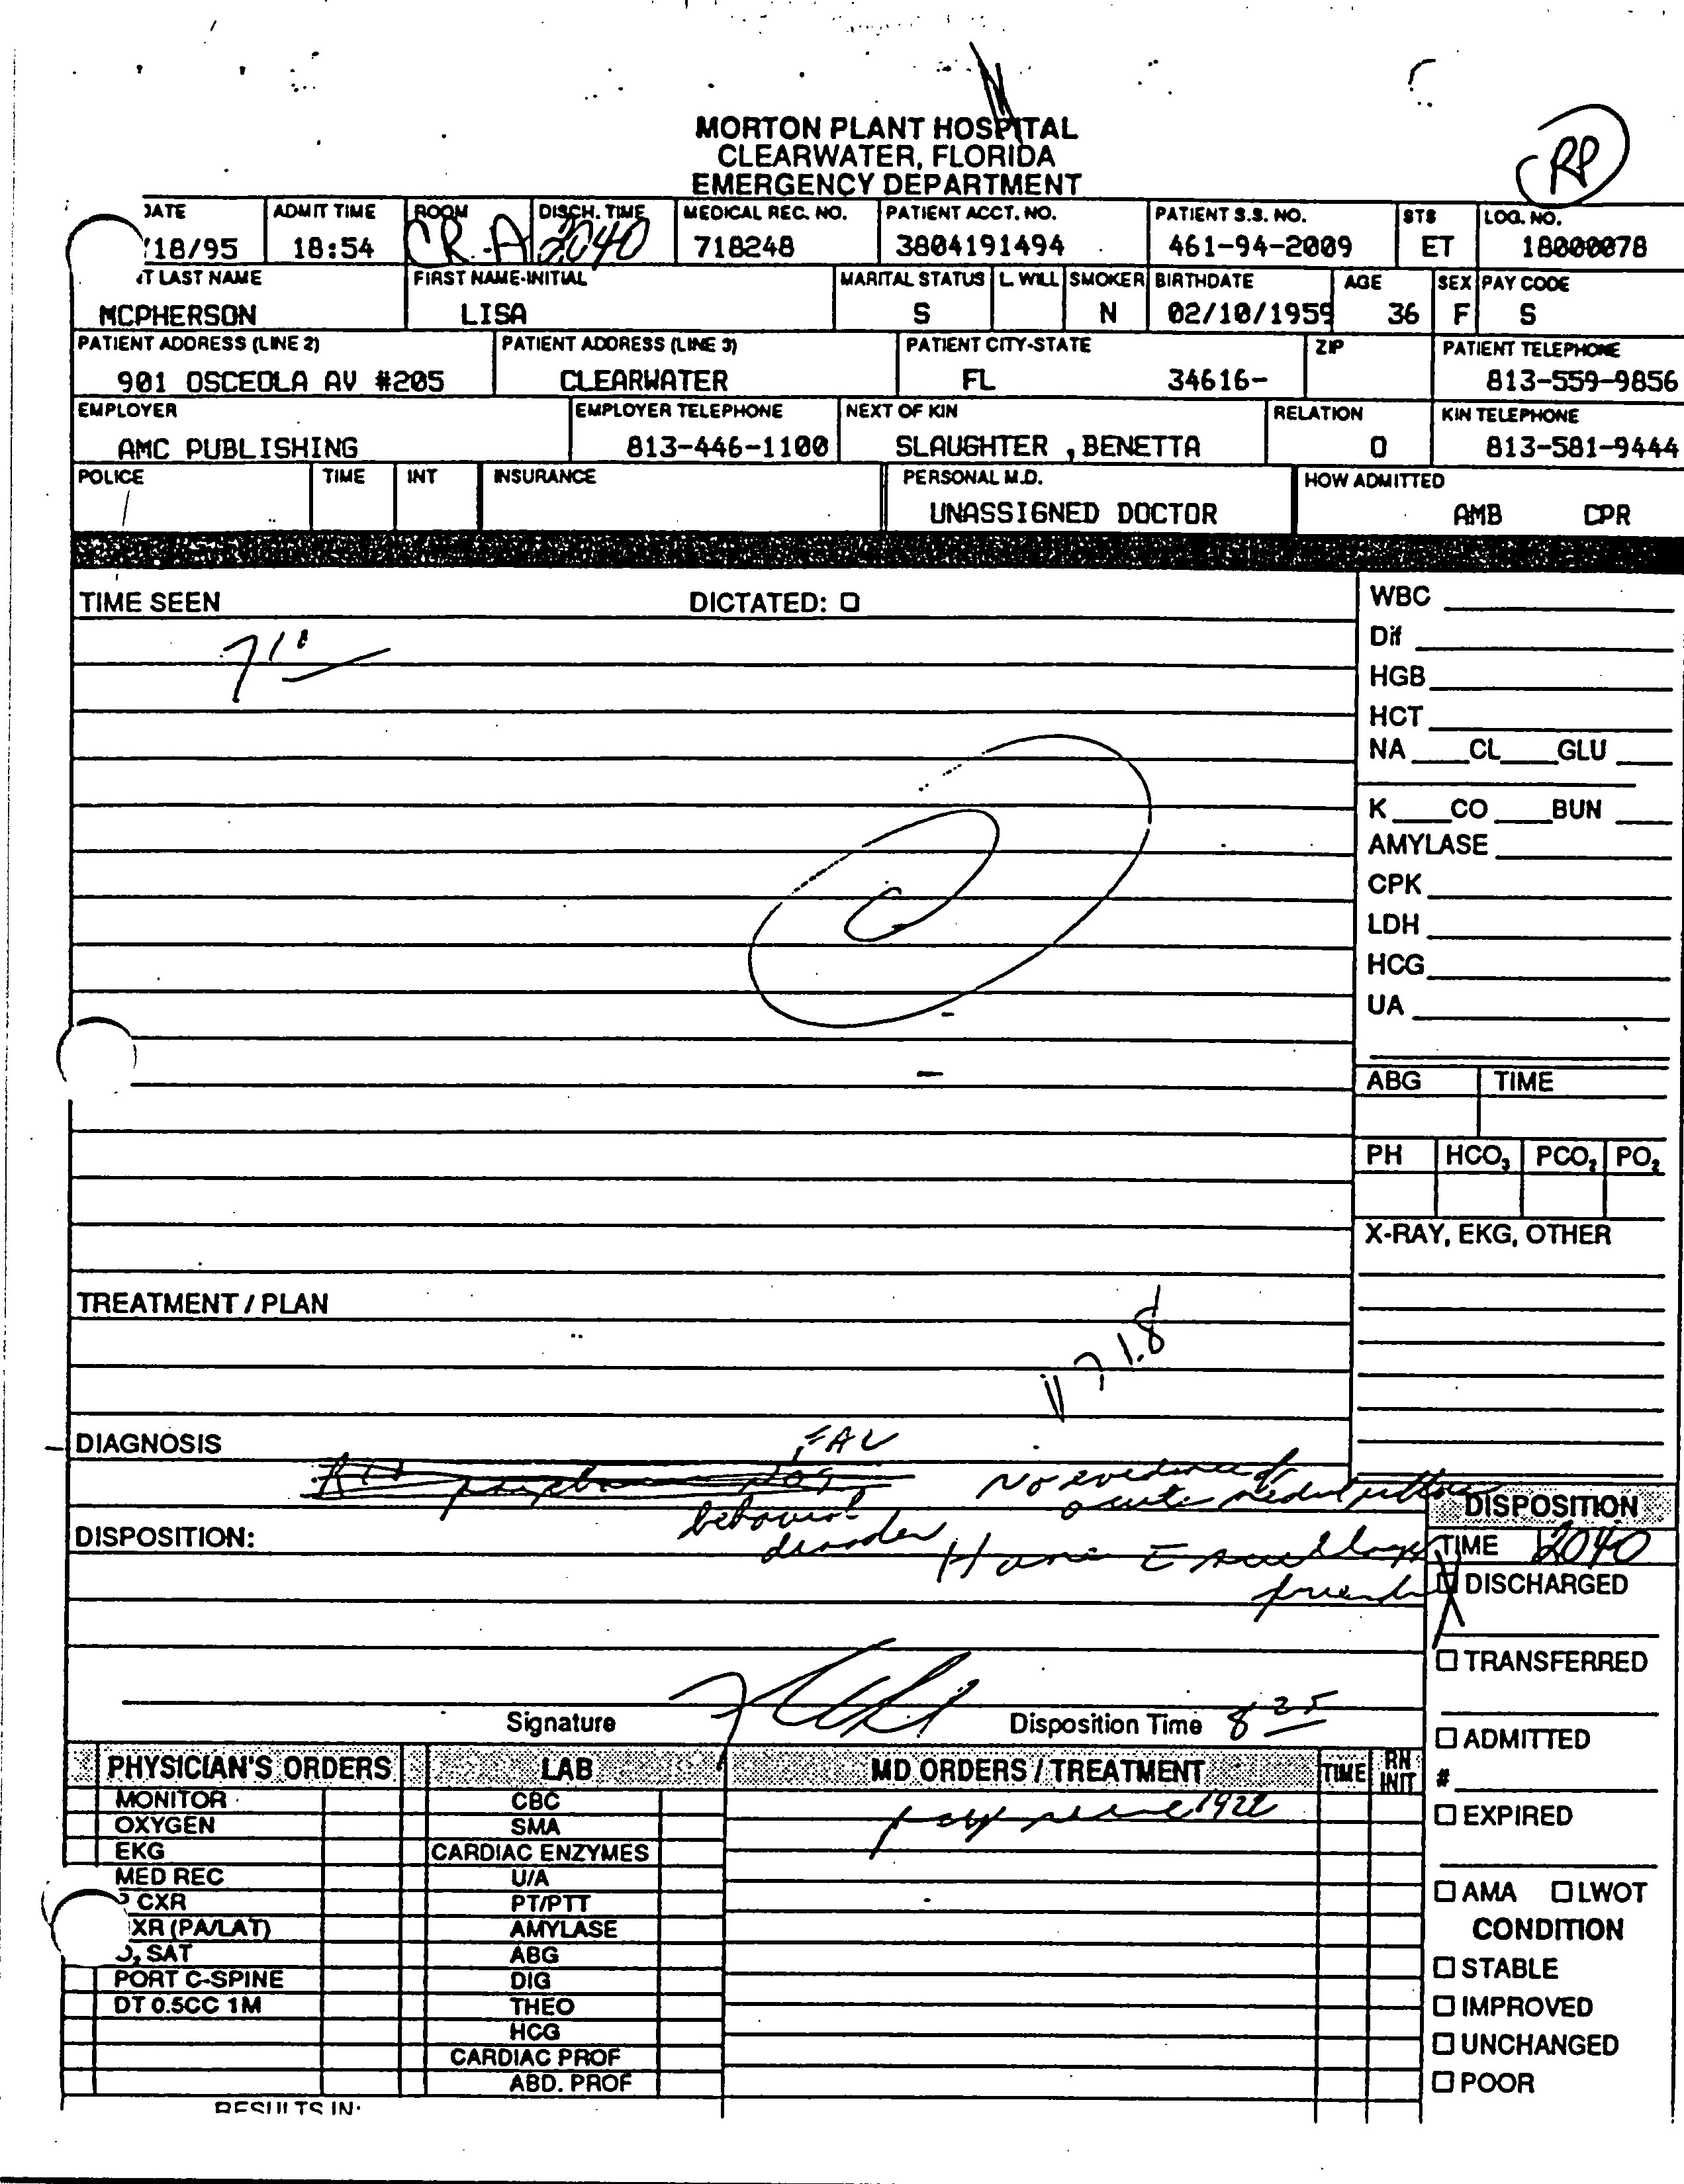 RP
MORTON PLANT HOSPITAL
CLEARWATER, FLORIDA
EMERGENCY DEPARTMENT
DATE ADMIT TIME ROOM DISCH. TIME MEDICAL REC. NO. PATIENT ACCT. NO. PATIENT S.S. NO. STS LOG. NO.
/18/95 18:54 CR-A 2040 718248 3804191494 461-94-2009 ET 18000078
T LAST NAME FIRST NAME-INITIAL MARITAL STATUS L. WILL SMOKER BIRTHDATE AGE SEX PAY CODE
MCPHERSON LISA S N 02/10/1959 36 F S
PATIENT ADDRESS (LINE 2) PATIENT ADDRESS (LINE 3) PATIENT CITY-STATE ZIP PATIENT TELEPHONE
901 OSCEOLA AV #205 CLEARWATER FL 34616- 813-559-9856
EMPLOYER EMPLOYER TELEPHONE NEXT OF KIN RELATION KIN TELEPHONE
AMC PUBLISHING 813-446-1100 SLAUGHTER , BENETTA O 813-581-9444
POLICE TIME INT INSURANCE PERSONAL M.D. HOW ADMITTED
UNASSIGNED DOCTOR AMB CPR
TIME SEEN DICTATED:
7 10
WBC
Dif
HGB
HCT
NA CL GLU
K CO BUN
AMYLASE
CPK
LDH
HCG
UA
ABG TIME
PH HCO3 PCO2 PO2
X-RAY, EKG, OTHER
TREATMENT / PLAN
71.8
DIAGNOSIS
No evidence of
behavioral
disorder
acute medical
DISPOSITION:
Home
friends
Signature Disposition Time 8 25
DISPOSITION
TIME 2040
DISCHARGED
TRANSFERRED
ADMITTED
#
EXPIRED
AMA LWOT
CONDITION
STABLE
IMPROVED
UNCHANGED
POOR
PHYSICIAN'S ORDERS LAB MD ORDERS / TREATMENT TIME RN INIT
MONITOR CBC 1922
OXYGEN SMA
EKG CARDIAC ENZYMES
MED REC U/A
CXR PT/PTT
XR (PA/LAT) AMYLASE
O2 SAT ABG
PORT C-SPINE DIG
DT 0.5CC 1M THEO
HCG
CARDIAC PROF
ABD. PROF
RESULTS IN: